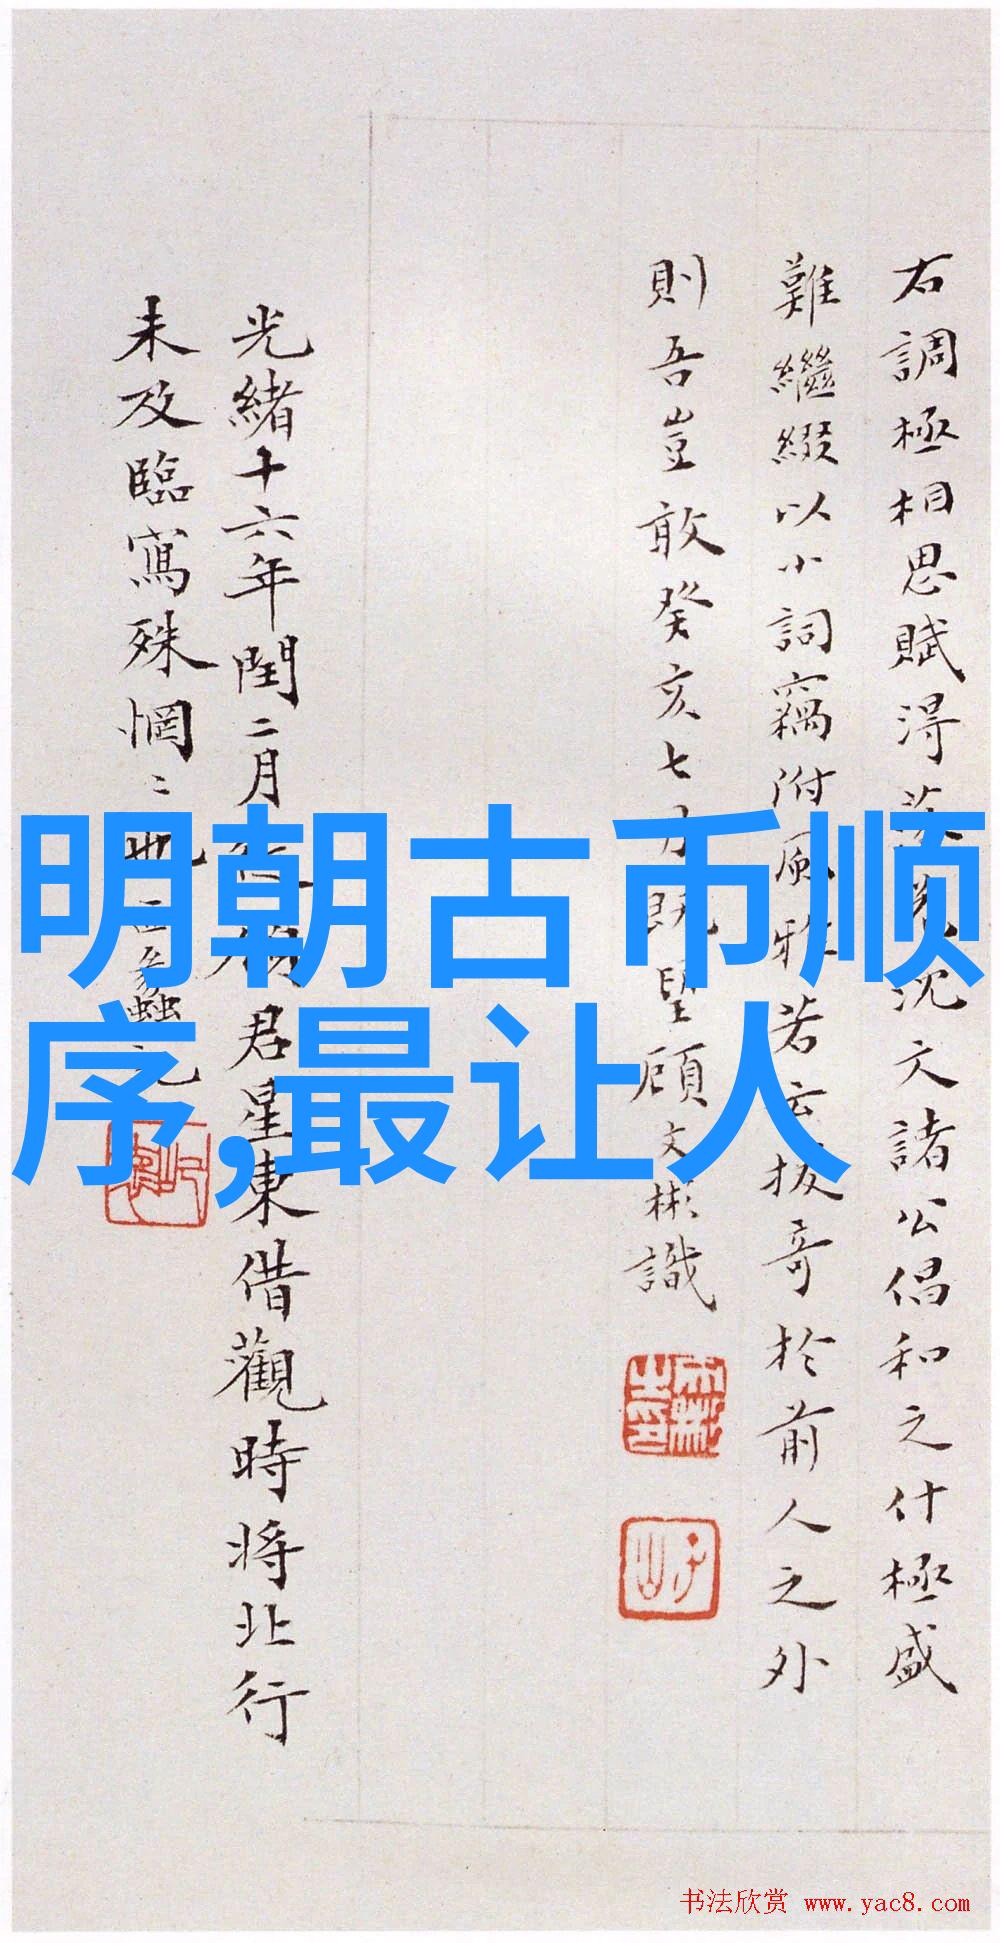 右調極相思賦得落花沈文諸公倡和之什極盛
難繼綴以小詞竊附風雅若云拔奇於前人之外
則吾豈敢癸亥七月既望顧文彬識
光緒十六年閏二月從顧君星東借觀時將北行
未及臨寫殊惘〻也
明朝古币顺
序,最让人
书法欣赏 www.yac8.com